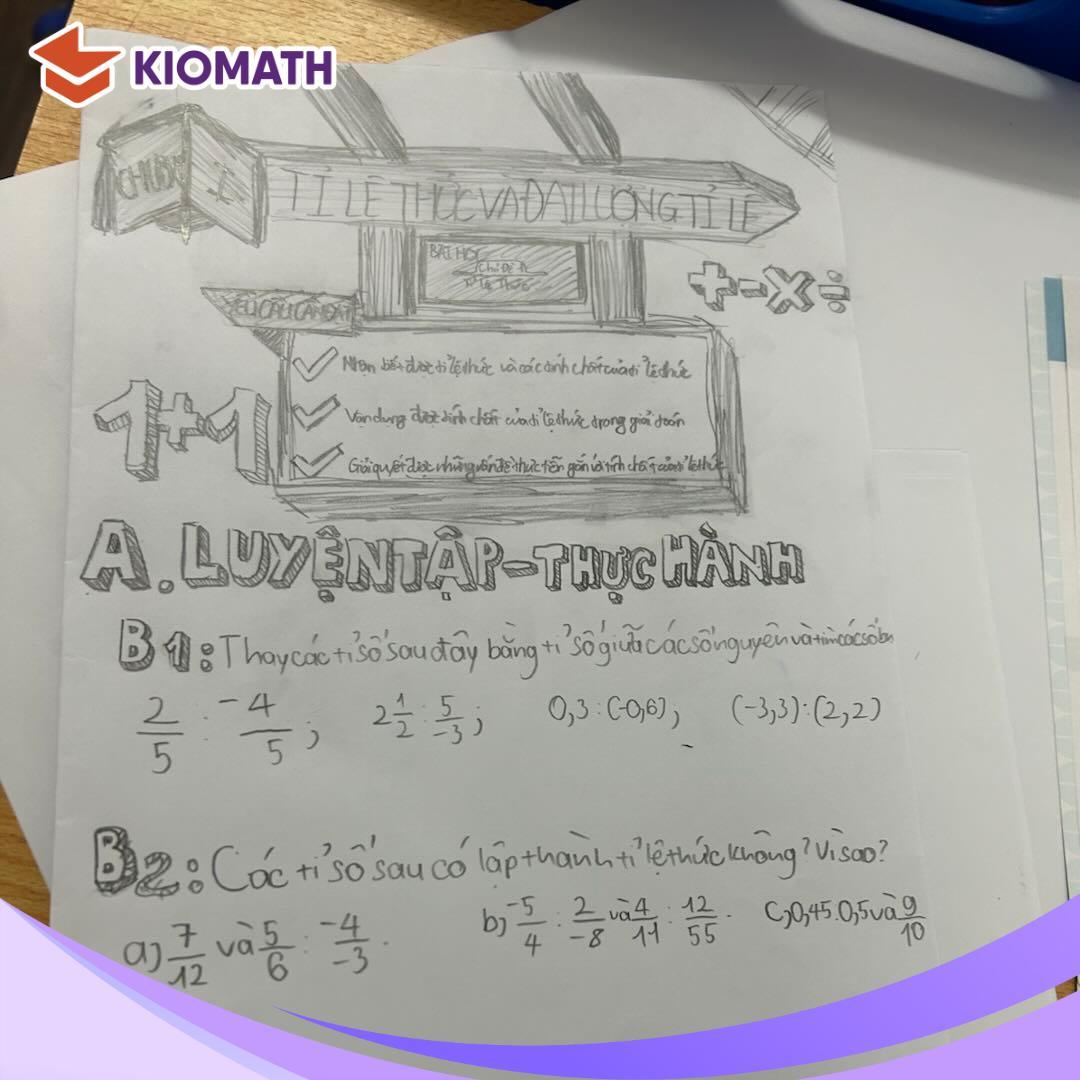 KIOMATH
CHƯƠNG I
TỈ LỆ THỨC VÀ ĐẠI LƯỢNG TỈ LỆ
BÀI HỌC
Chủ Đề 1
Tỉ Lệ Thức
YÊU CẦU CẦN ĐẠT
Nhận biết được tỉ lệ thức và các tính chất của tỉ lệ thức
Vận dụng được tính chất của tỉ lệ thức trong giải toán
Giải quyết được những vấn đề thực tiễn gắn với tính chất của tỉ lệ thức
+ - x ÷
1+1
A. LUYỆN TẬP - THỰC HÀNH
B1: Thay các tỉ số sau đây bằng tỉ số giữa các số nguyên và tìm các số
2/5 : -4/5 ; 2 1/2 : 5/-3 ; 0,3 : (-0,6); (-3,3) : (2,2)
B2: Các tỉ số sau có lập thành tỉ lệ thức không? Vì sao?
a) 7/12 và 5/6 : -4/-3 . b) -5/4 : 2/-8 và 4/11 : 12/55 . c) 0,45.0,5 và 9/10